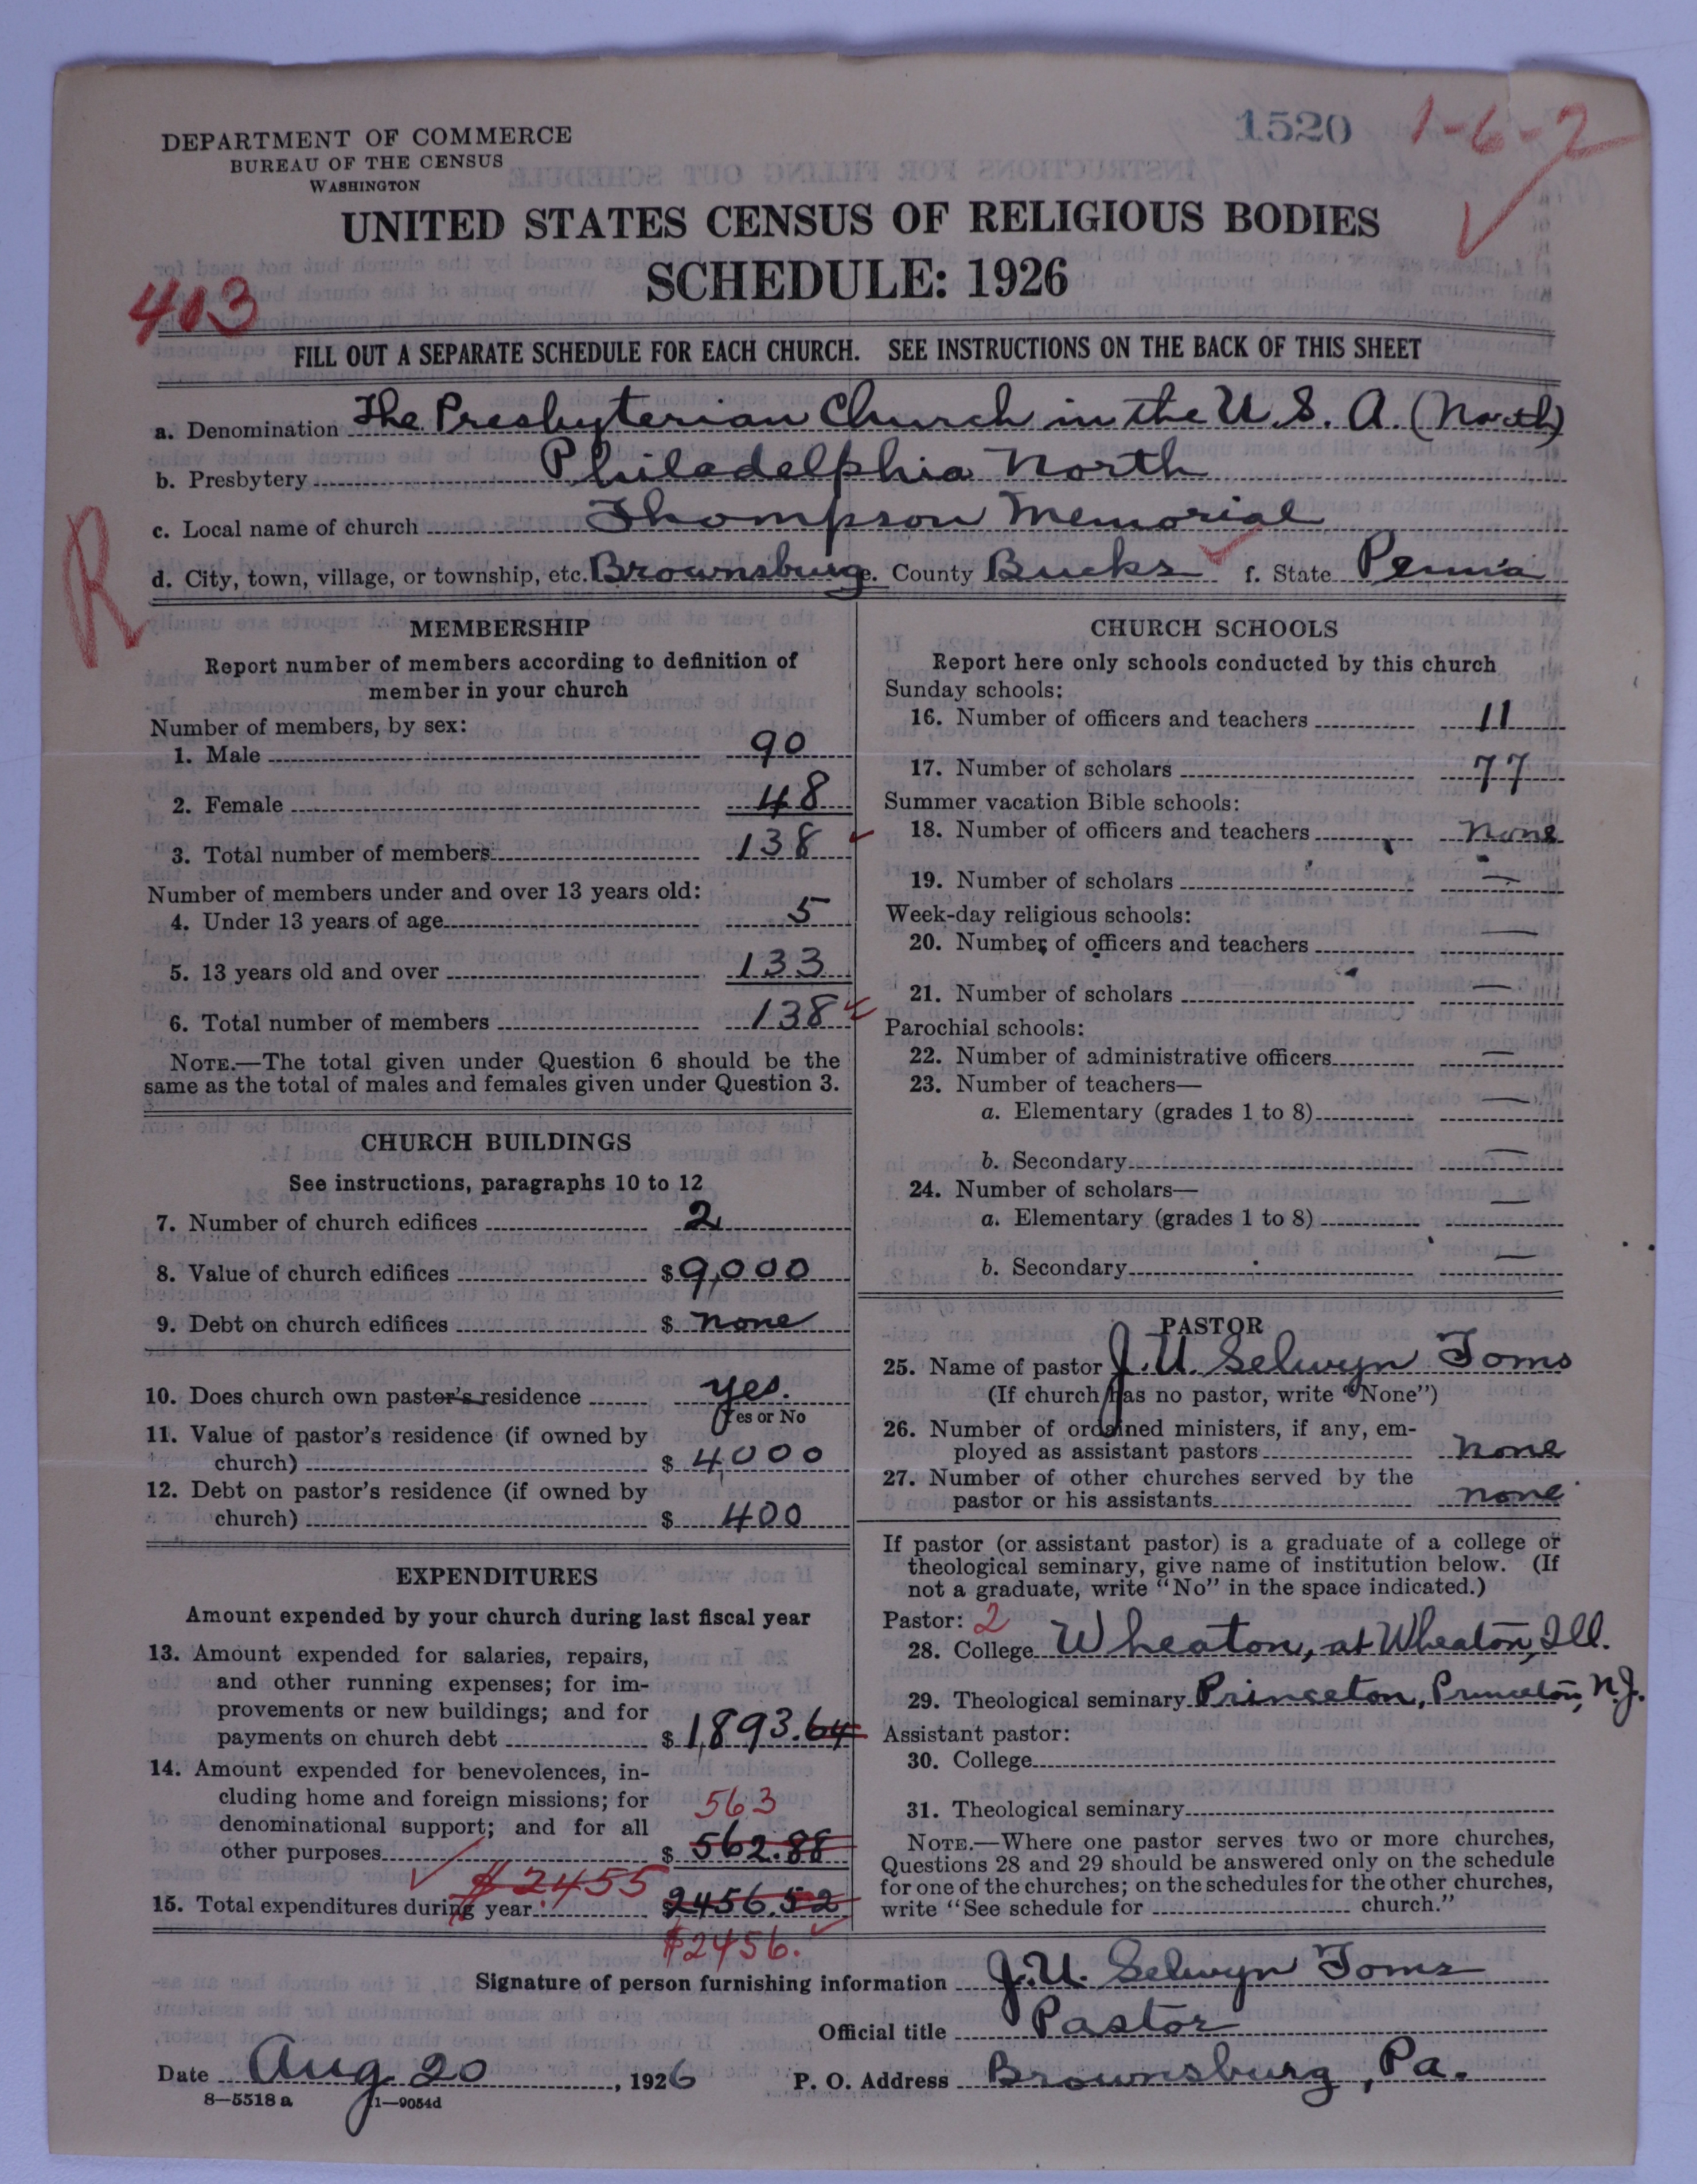 1520 1-6-2
DEPARTMENT OF COMMERCE
BUREAU OF THE CENSUS
WASHINGTON
UNITED STATES CENSUS OF RELIGIOUS BODIES
SCHEDULE: 1926
403
FILL OUT A SEPARATE SCHEDULE FOR EACH CHURCH. SEE INSTRUCTIONS ON THE BACK OF THIS SHEET
a. Denomination The Presbyterian Church in the U.S.A. (North)
b. Presbytery Philadelphia North
c. Local name of church Thompson Memorial
R
d. City, town, village, or township, etc. Brownsburg e. County Bucks f. State Penn'a
MEMBERSHIP
Report number of members according to definition of
member in your church
Number of members, by sex:
1. Male 90
2. Female 48
3. Total number of members 138
Number of members under and over 13 years old:
4. Under 13 years of age 5
5. 13 years old and over 133
6. Total number of members 138
NOTE.—The total given under Question 6 should be the
same as the total of males and females given under Question 3.
CHURCH BUILDINGS
See instructions, paragraphs 10 to 12
7. Number of church edifices 2
8. Value of church edifices $ 9,000
9. Debt on church edifices $ none
10. Does church own pastor's residence yes.
Yes or No
11. Value of pastor's residence (if owned by
church) $ 4,000
12. Debt on pastor's residence (if owned by
church) $ 400
EXPENDITURES
Amount expended by your church during last fiscal year
13. Amount expended for salaries, repairs,
and other running expenses; for im-
provements or new buildings; and for
payments on church debt $ 1,893.64
14. Amount expended for benevolences, in-
cluding home and foreign missions; for
denominational support; and for all 563
other purposes $ 562.88
$2455
15. Total expenditures during year $ 2456.52
$2456.
CHURCH SCHOOLS
Report here only schools conducted by this church
Sunday schools:
16. Number of officers and teachers 11
17. Number of scholars 77
Summer vacation Bible schools:
18. Number of officers and teachers none
19. Number of scholars —
Week-day religious schools:
20. Number of officers and teachers —
21. Number of scholars —
Parochial schools:
22. Number of administrative officers —
23. Number of teachers—
a. Elementary (grades 1 to 8) —
b. Secondary —
24. Number of scholars—
a. Elementary (grades 1 to 8) —
b. Secondary —
PASTOR
25. Name of pastor J. U. Selwyn Toms
(If church has no pastor, write "None")
26. Number of ordained ministers, if any, em-
ployed as assistant pastors none
27. Number of other churches served by the
pastor or his assistants none
If pastor (or assistant pastor) is a graduate of a college or
theological seminary, give name of institution below. (If
not a graduate, write "No" in the space indicated.)
Pastor: 2
28. College Wheaton, at Wheaton, Ill.
29. Theological seminary Princeton, Princeton, N.J.
Assistant pastor:
30. College
31. Theological seminary
NOTE.—Where one pastor serves two or more churches,
Questions 28 and 29 should be answered only on the schedule
for one of the churches; on the schedules for the other churches,
write "See schedule for church."
Signature of person furnishing information J. U. Selwyn Toms
Official title Pastor
Date Aug 20, 1926 P. O. Address Brownsburg, Pa.
8—5518 a 11—9054d